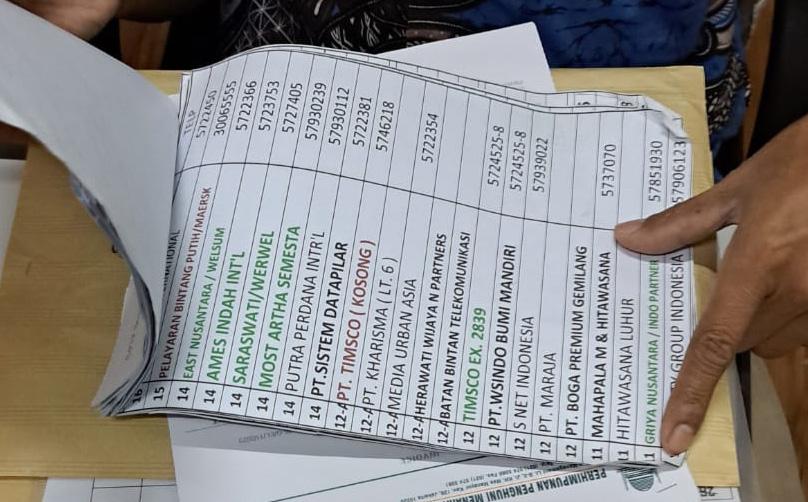 TELP
16 NATIONAL
15 PELAYARAN BINTANG PUTIH/MAERSK 5722450
14 EAST NUSANTARA / WELSUM 30065555
14 AMES INDAH INT'L 5722366
14 SARASWATI/WERWEL 5723753
14 MOST ARTHA SEMESTA 5727405
14 PUTRA PERDANA INTR'L 57930239
14 PT.SISTEM DATAPILAR 57930112
12-A PT. TIMSCO ( KOSONG ) 5722381
12-A PT. KHARISMA ( LT. 6 ) 5746218
12-A MEDIA URBAN ASIA
12-A HERAWATI WIJAYA N PARTNERS 5722354
12-A BATAN BINTAN TELEKOMUNIKASI
12 TIMSCO EX. 2839
12 PT.WSINDO BUMI MANDIRI 5724525-8
12 S NET INDONESIA 5724525-8
12 PT. MARAJA 57939022
12 PT. BOGA PREMIUM GEMILANG
11 MAHAPALA M & HITAWASANA 5737070
11 HITAWASANA LUHUR
11 GRIYA NUSANTARA / INDO PARTNER 57851930
GROUP INDONESIA 57906123
INVOICE
PERHIMPUNAN PENGHUNI